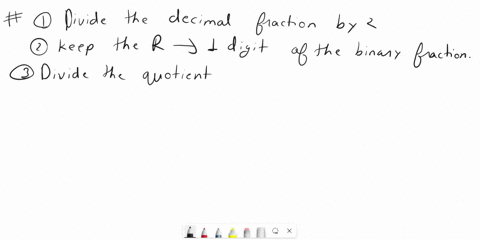 # ① Divide the decimal fraction by 2
② keep the R → 1 digit of the binary fraction.
③ Divide the quotient